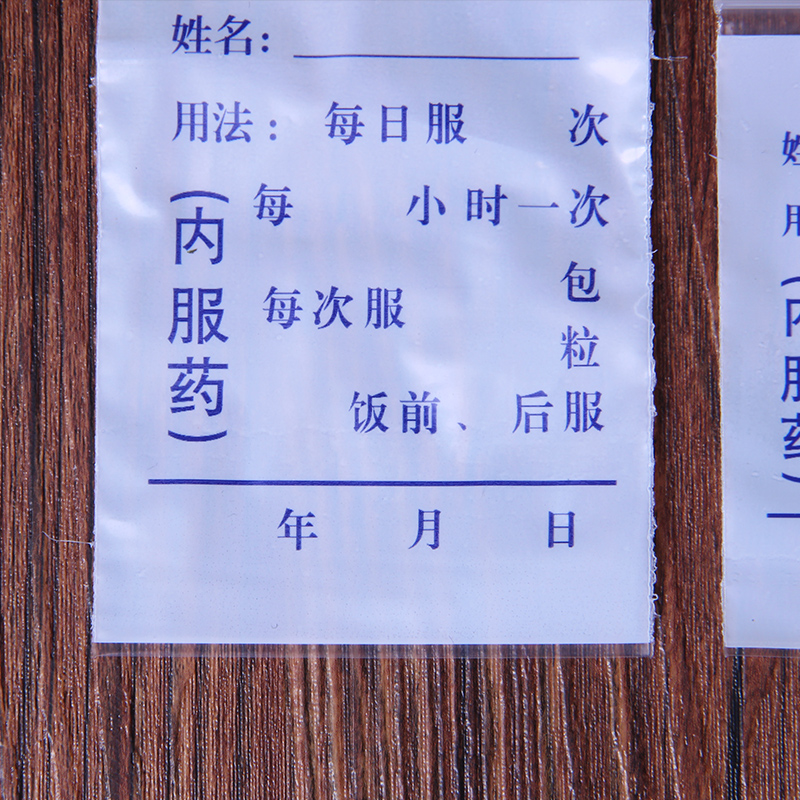 姓名：
用法：每日服 次
每 小时一次
(内服药)
每次服 包
粒
饭前、后服
年 月 日
姓
用
(内服药)